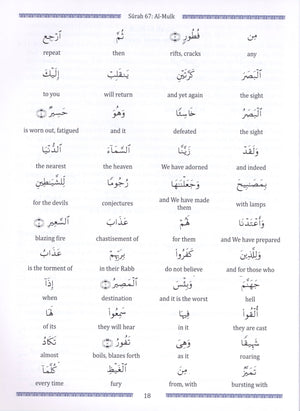 Sūrah 67: Al-Mulk
مِن فُطُورٍ ۝ ثُمَّ ٱرْجِعِ
any rifts, cracks then repeat
ٱلْبَصَرَ كَرَّتَيْنِ يَنقَلِبْ إِلَيْكَ
the sight and yet again will return to you
ٱلْبَصَرُ خَاسِئًا وَهُوَ حَسِيرٌ ۝
the sight defeated and it is worn out, fatigued
وَلَقَدْ زَيَّنَّا ٱلسَّمَآءَ ٱلدُّنْيَا
and indeed We have adorned the heaven the nearest
بِمَصَٰبِيحَ وَجَعَلْنَٰهَا رُجُومًا لِّلشَّيَٰطِينِ
with lamps and We have made them conjectures for the devils
وَأَعْتَدْنَا لَهُمْ عَذَابَ ٱلسَّعِيرِ ۝
and We have prepared for them chastisement of blazing fire
وَلِلَّذِينَ كَفَرُوا۟ بِرَبِّهِمْ عَذَابُ
and for those who do not believe in their Rabb is the torment of
جَهَنَّمَ وَبِئْسَ ٱلْمَصِيرُ ۝ إِذَآ
hell and it is the worst destination when
أُلْقُوا۟ فِيهَا سَمِعُوا۟ لَهَا
they are cast in it they will hear of its
شَهِيقًا وَهِىَ تَفُورُ ۝ تَكَادُ
roaring as it boils, blazes forth almost
تَمَيَّزُ مِنَ ٱلْغَيْظِ كُلَّمَآ
bursting with from, with fury every time
18